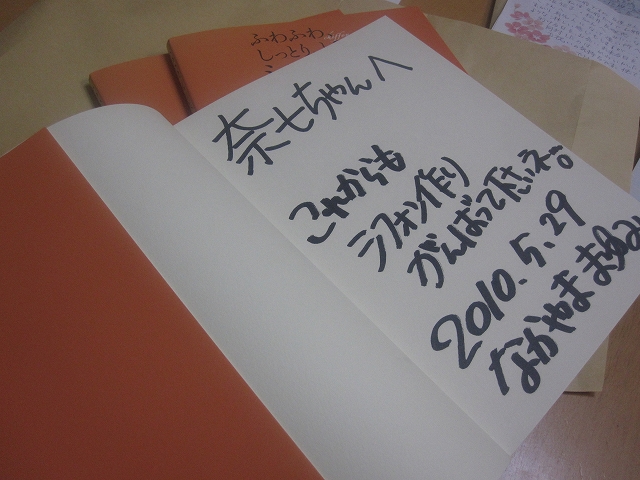 ふわふわ
しっとり
奈七ちゃんへ
これからも
シフォン作り
がんばって下さいネ。
2010.5.29
なかやま まゆみ